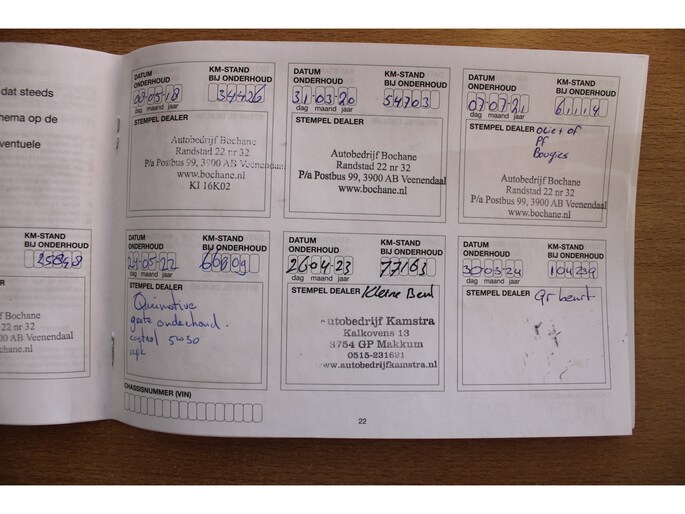 dat steeds
hema op de
ventuele
KM-STAND
BIJ ONDERHOUD
25848
Bochane
22 nr 32
00 AB Veenendaal
ne.nl
DATUM
ONDERHOUD
KM-STAND
BIJ ONDERHOUD
08-05-18
34426
dag maand jaar
STEMPEL DEALER
Autobedrijf Bochane
Randstad 22 nr 32
P/a Postbus 99, 3900 AB Veenendaal
www.bochane.nl
KI 16K02
DATUM
ONDERHOUD
KM-STAND
BIJ ONDERHOUD
31-03-20
54703
dag maand jaar
STEMPEL DEALER
Autobedrijf Bochane
Randstad 22 nr 32
P/a Postbus 99, 3900 AB Veenendaal
www.bochane.nl
DATUM
ONDERHOUD
KM-STAND
BIJ ONDERHOUD
07-07-21
61114
dag maand jaar
STEMPEL DEALER
Olie + of
Pf
Bougies
Autobedrijf Bochane
Randstad 22 nr 32
P/a Postbus 99, 3900 AB Veenendaal
www.bochane.nl
DATUM
ONDERHOUD
KM-STAND
BIJ ONDERHOUD
24-05-22
dag maand jaar
STEMPEL DEALER
grote onderhoud.
5w30
DATUM
ONDERHOUD
KM-STAND
BIJ ONDERHOUD
26-04-23
77163
dag maand jaar
STEMPEL DEALER Kleine Beurt
Autobedrijf Kamstra
Kalkovens 13
8754 GP Makkum
0515-231691
www.autobedrijfkamstra.nl
DATUM
ONDERHOUD
KM-STAND
BIJ ONDERHOUD
30-03-24
104239
dag maand jaar
STEMPEL DEALER
Gr beurt
CHASSISNUMMER (VIN)
22